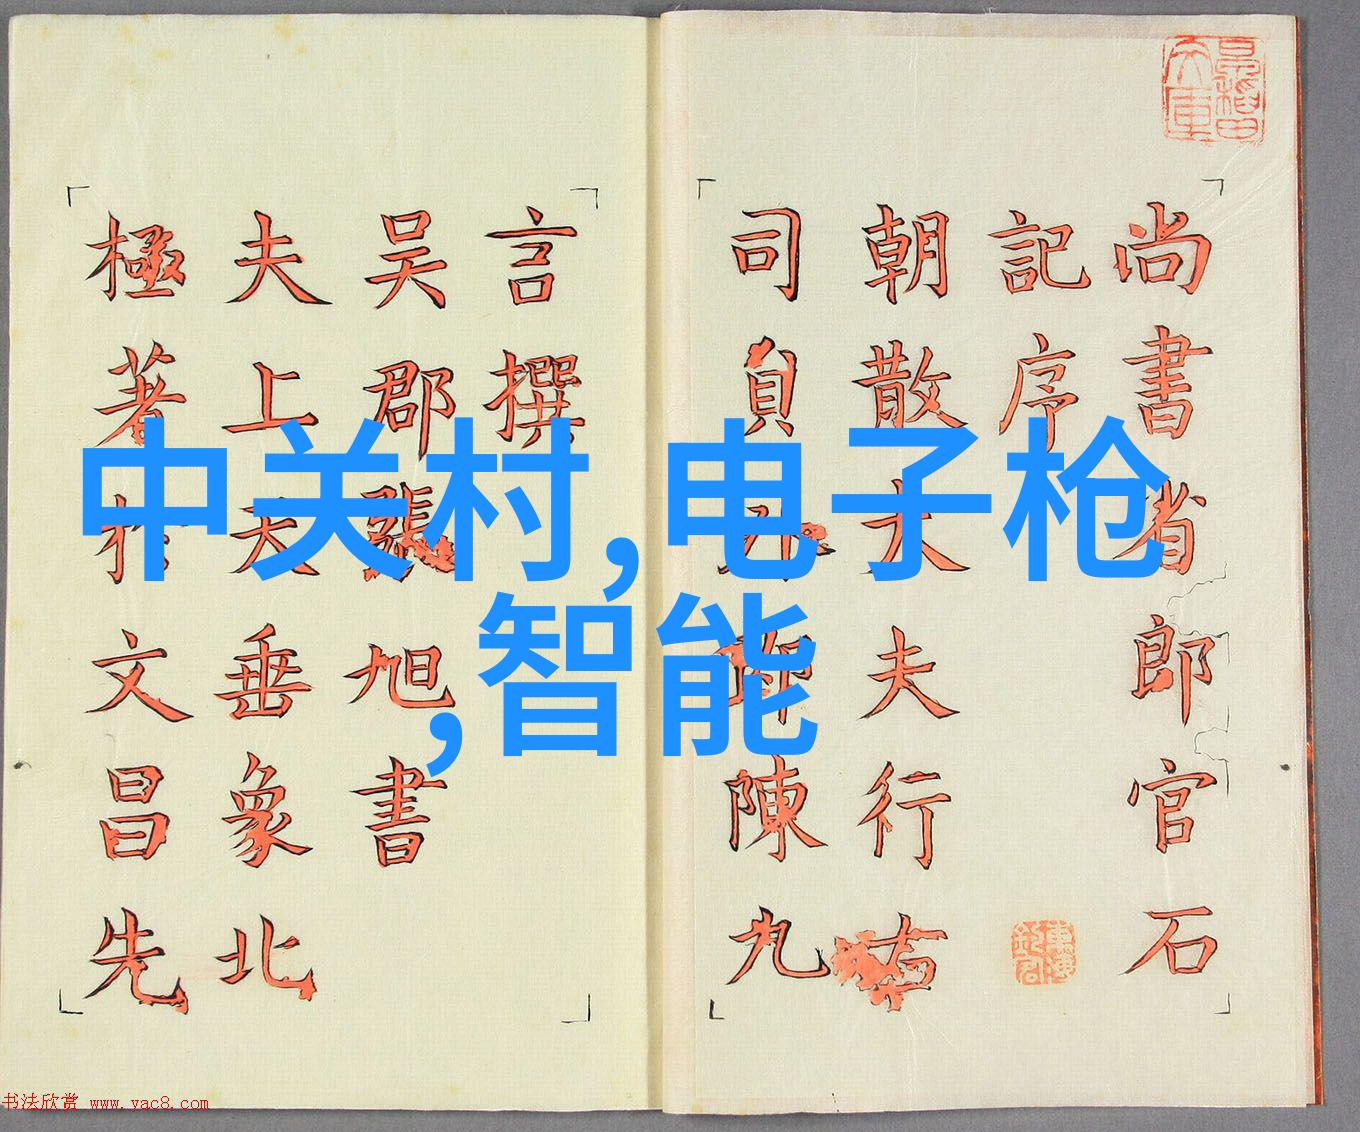 尚書省郎官石
記序
朝散大夫行右
司員陳九
言撰
吴郡張旭書
夫上天垂象北
極著文昌先
中关村,电子枪
,智能
书法欣赏 www.yac8.com